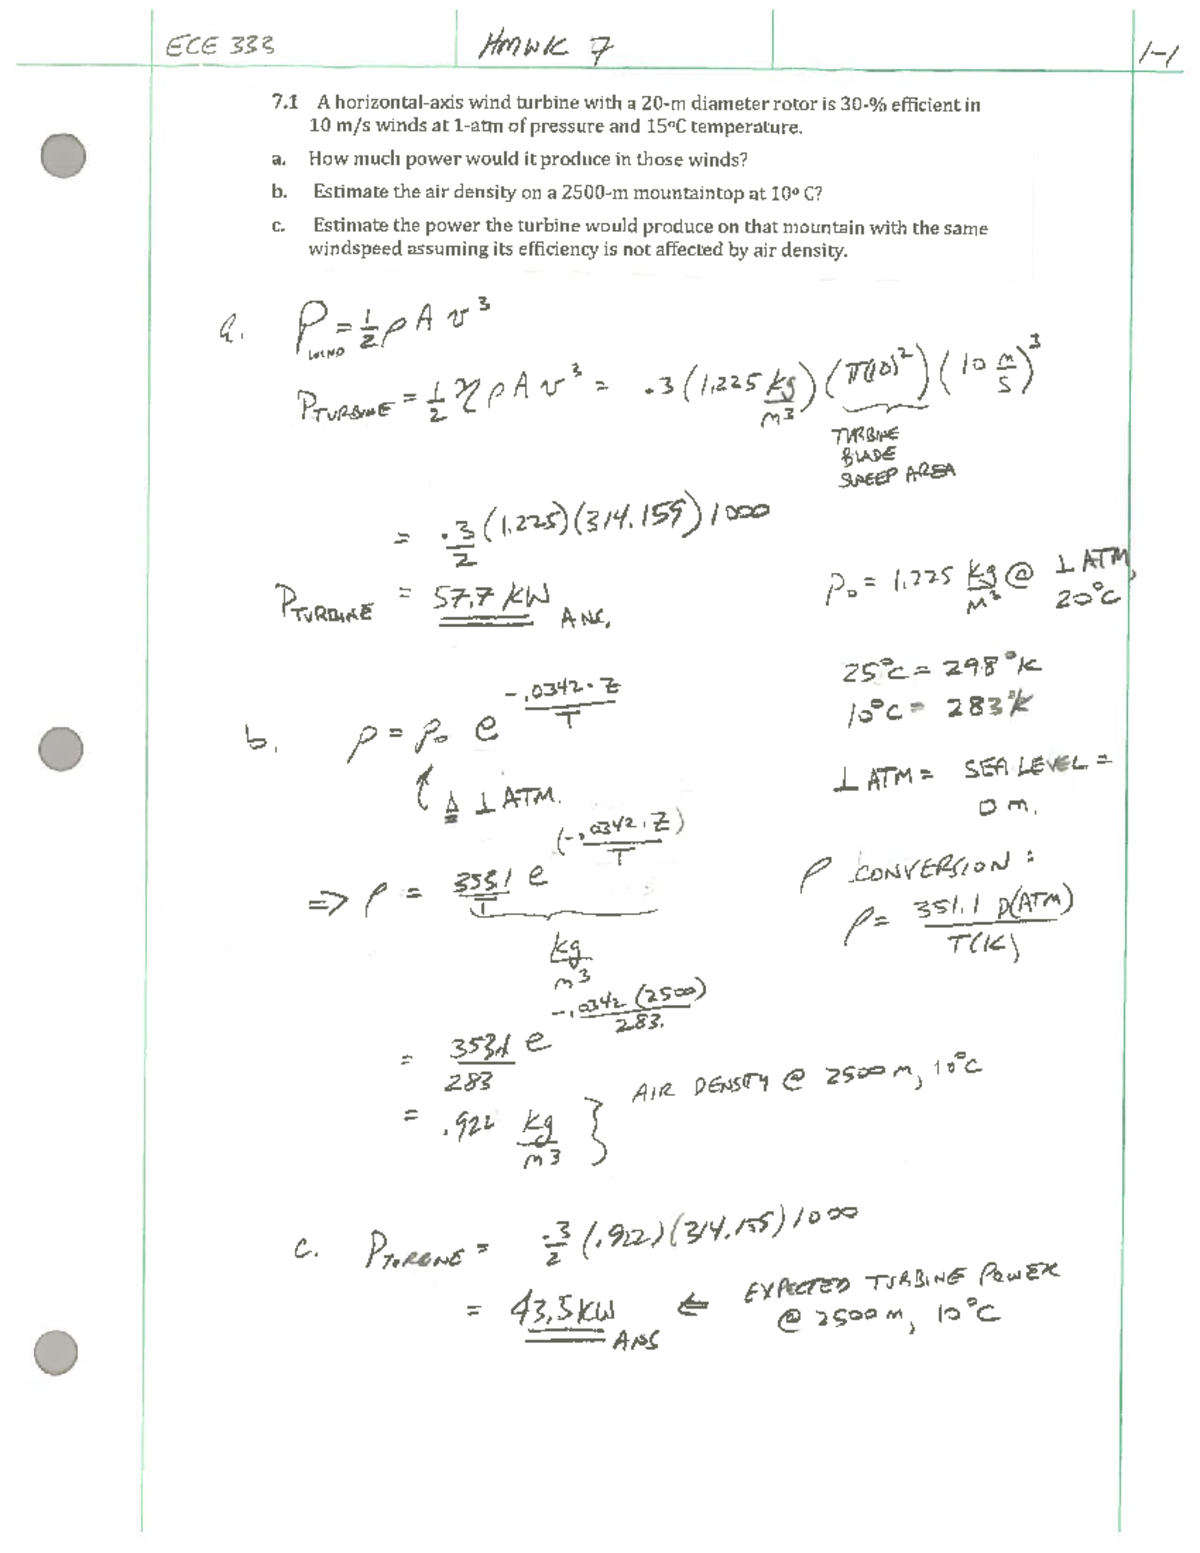 ECE 333 HMWK 7 1-1
7.1 A horizontal-axis wind turbine with a 20-m diameter rotor is 30-% efficient in
10 m/s winds at 1-atm of pressure and 15ºC temperature.
a. How much power would it produce in those winds?
b. Estimate the air density on a 2500-m mountaintop at 10º C?
c. Estimate the power the turbine would produce on that mountain with the same
windspeed assuming its efficiency is not affected by air density.
a. P_WIND = 1/2 ρ A v³
P_TURBINE = 1/2 η ρ A v³ = .3 (1.225 kg/m³) (π(10)²) (10 m/s)³
TURBINE
BLADE
SWEEP AREA
= .3/2 (1.225)(314.159) 1000
P_TURBINE = 57.7 KW ANS.
ρ₀ = 1.225 kg/m³ @ 1 ATM,
20°C
25°C = 298°K
10°C = 283°K
1 ATM = SEA LEVEL =
0 m.
b. ρ = ρ₀ e^(-.0342·Z/T)
≜ 1 ATM.
⇒ ρ = 353.1/T e^(-.0342·Z/T)
kg/m³
ρ CONVERSION:
ρ = 351.1 P(ATM)/T(K)
= 353.1/283 e^(-.0342 (2500)/283.)
= .922 kg/m³ } AIR DENSITY @ 2500 m, 10°C
c. P_TURBINE = .3/2 (.922)(314.155) 1000
= 43.5 KW ⇐ EXPECTED TURBINE POWER
ANS @ 2500 m, 10°C